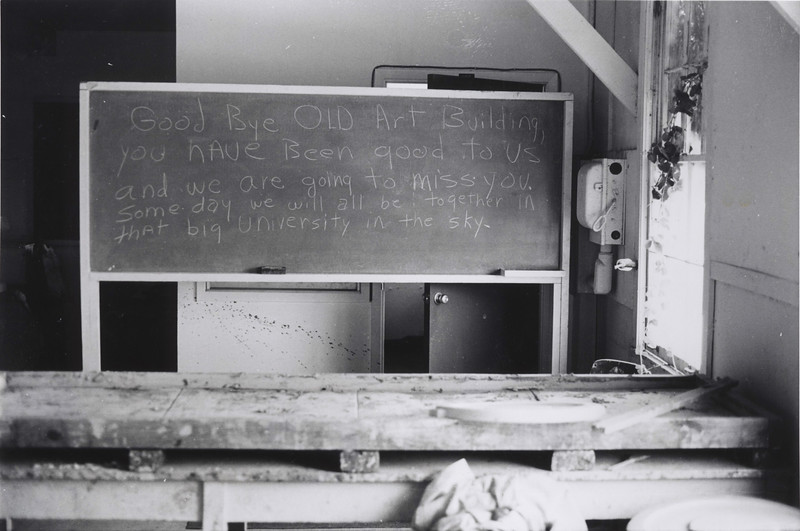 Good Bye OLD Art Building,
you hAVE Been good to Us
and we are going to miss you.
Some day we will all be together in
that big University in the sky.